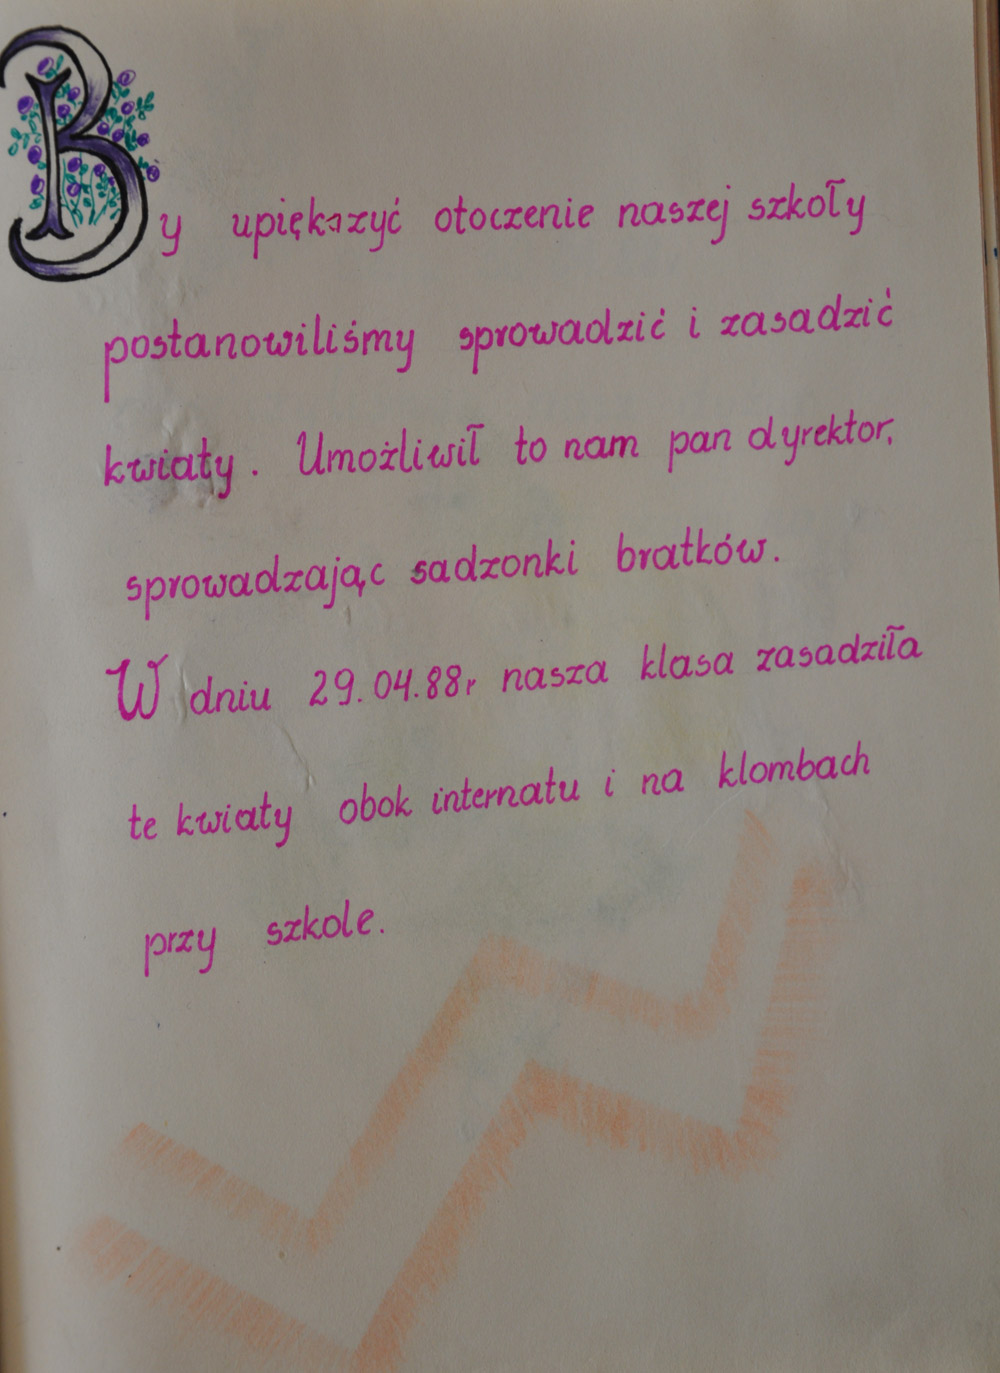 By upiękazyć otoczenie naszej szkoły
postanowiliśmy sprowadzić i zasadzić
kwiaty. Umożliwił to nam pan dyrektor,
sprowadzając sadzonki bratków.
W dniu 29.04.88r nasza klasa zasadziła
te kwiaty obok internatu i na klombach
przy szkole.